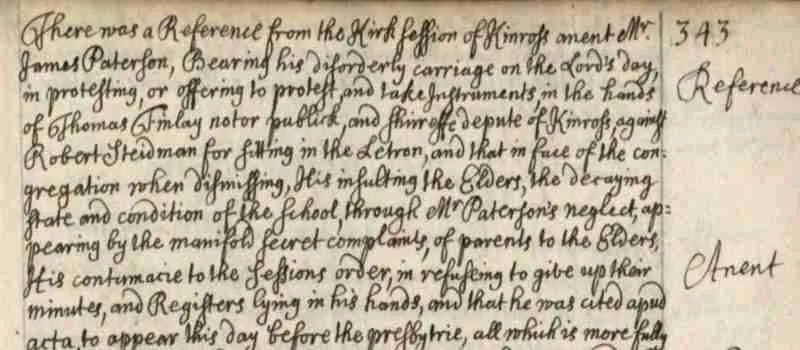 There was a Reference from the Kirk session of Kinross anent Mr.
343
James Paterson, Bearing his disorderly carriage on the Lord's day,
Reference
in protesting, or offering to protest, and take Instruments, in the hands
of Thomas Finlay notor publick, and shirreffe depute of Kinross, against
Robert Steidman for sitting in the Letron, and that in face of the con:
gregation when dismissing, His insulting the Elders, the decaying
state and condition of the school, through Mr Paterson's neglect, ap:
pearing by the manifold secret complaints, of parents to the Elders,
Anent
His contumacie to the sessions order, in refuseing to give up their
minutes, and Registers lying in his hands, and that he was cited apud
acta, to appear this day before the presbytrie, all which is more fully